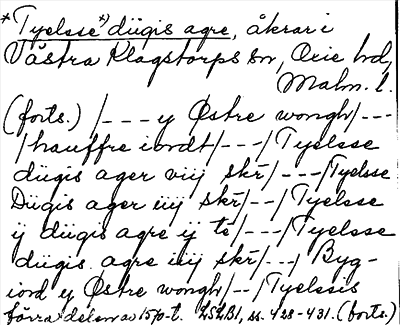 *Tyelsse*) diigis agre, åkrar i
Västra Klagstorps sn, Oxie hd,
Malm. l.
(forts.) /---y Østre wongh/---
/hauffre iordt/---/Tyelsse
diigis ager viij skr̄/---/Tyelsse
Diigis ager iiij skr̄/--/Tyelsse
ij diigis agre ij te/---/Tyelsse
diigis agre iiij skr̄/--/ Byg-
iord y Østre wongh/--/Tyelssis
förra delen av 1570-t. LSLB1, ss. 428-431. (forts.)